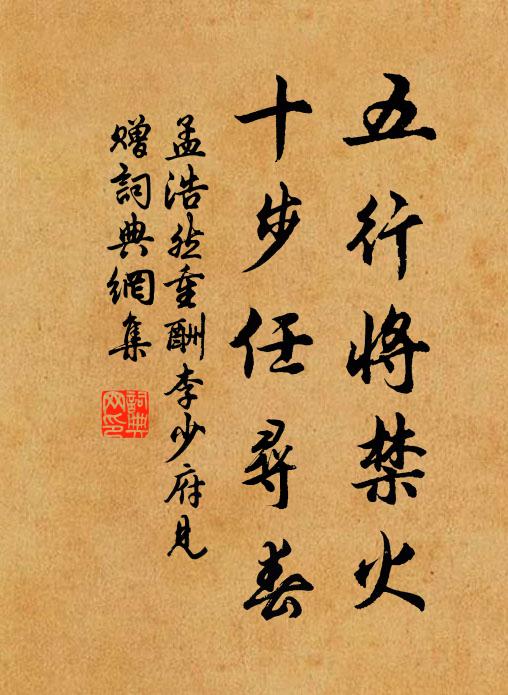 五行将禁火
十步任尋春
孟浩然重酬李少府見
贈詞典網集
詞典
网印